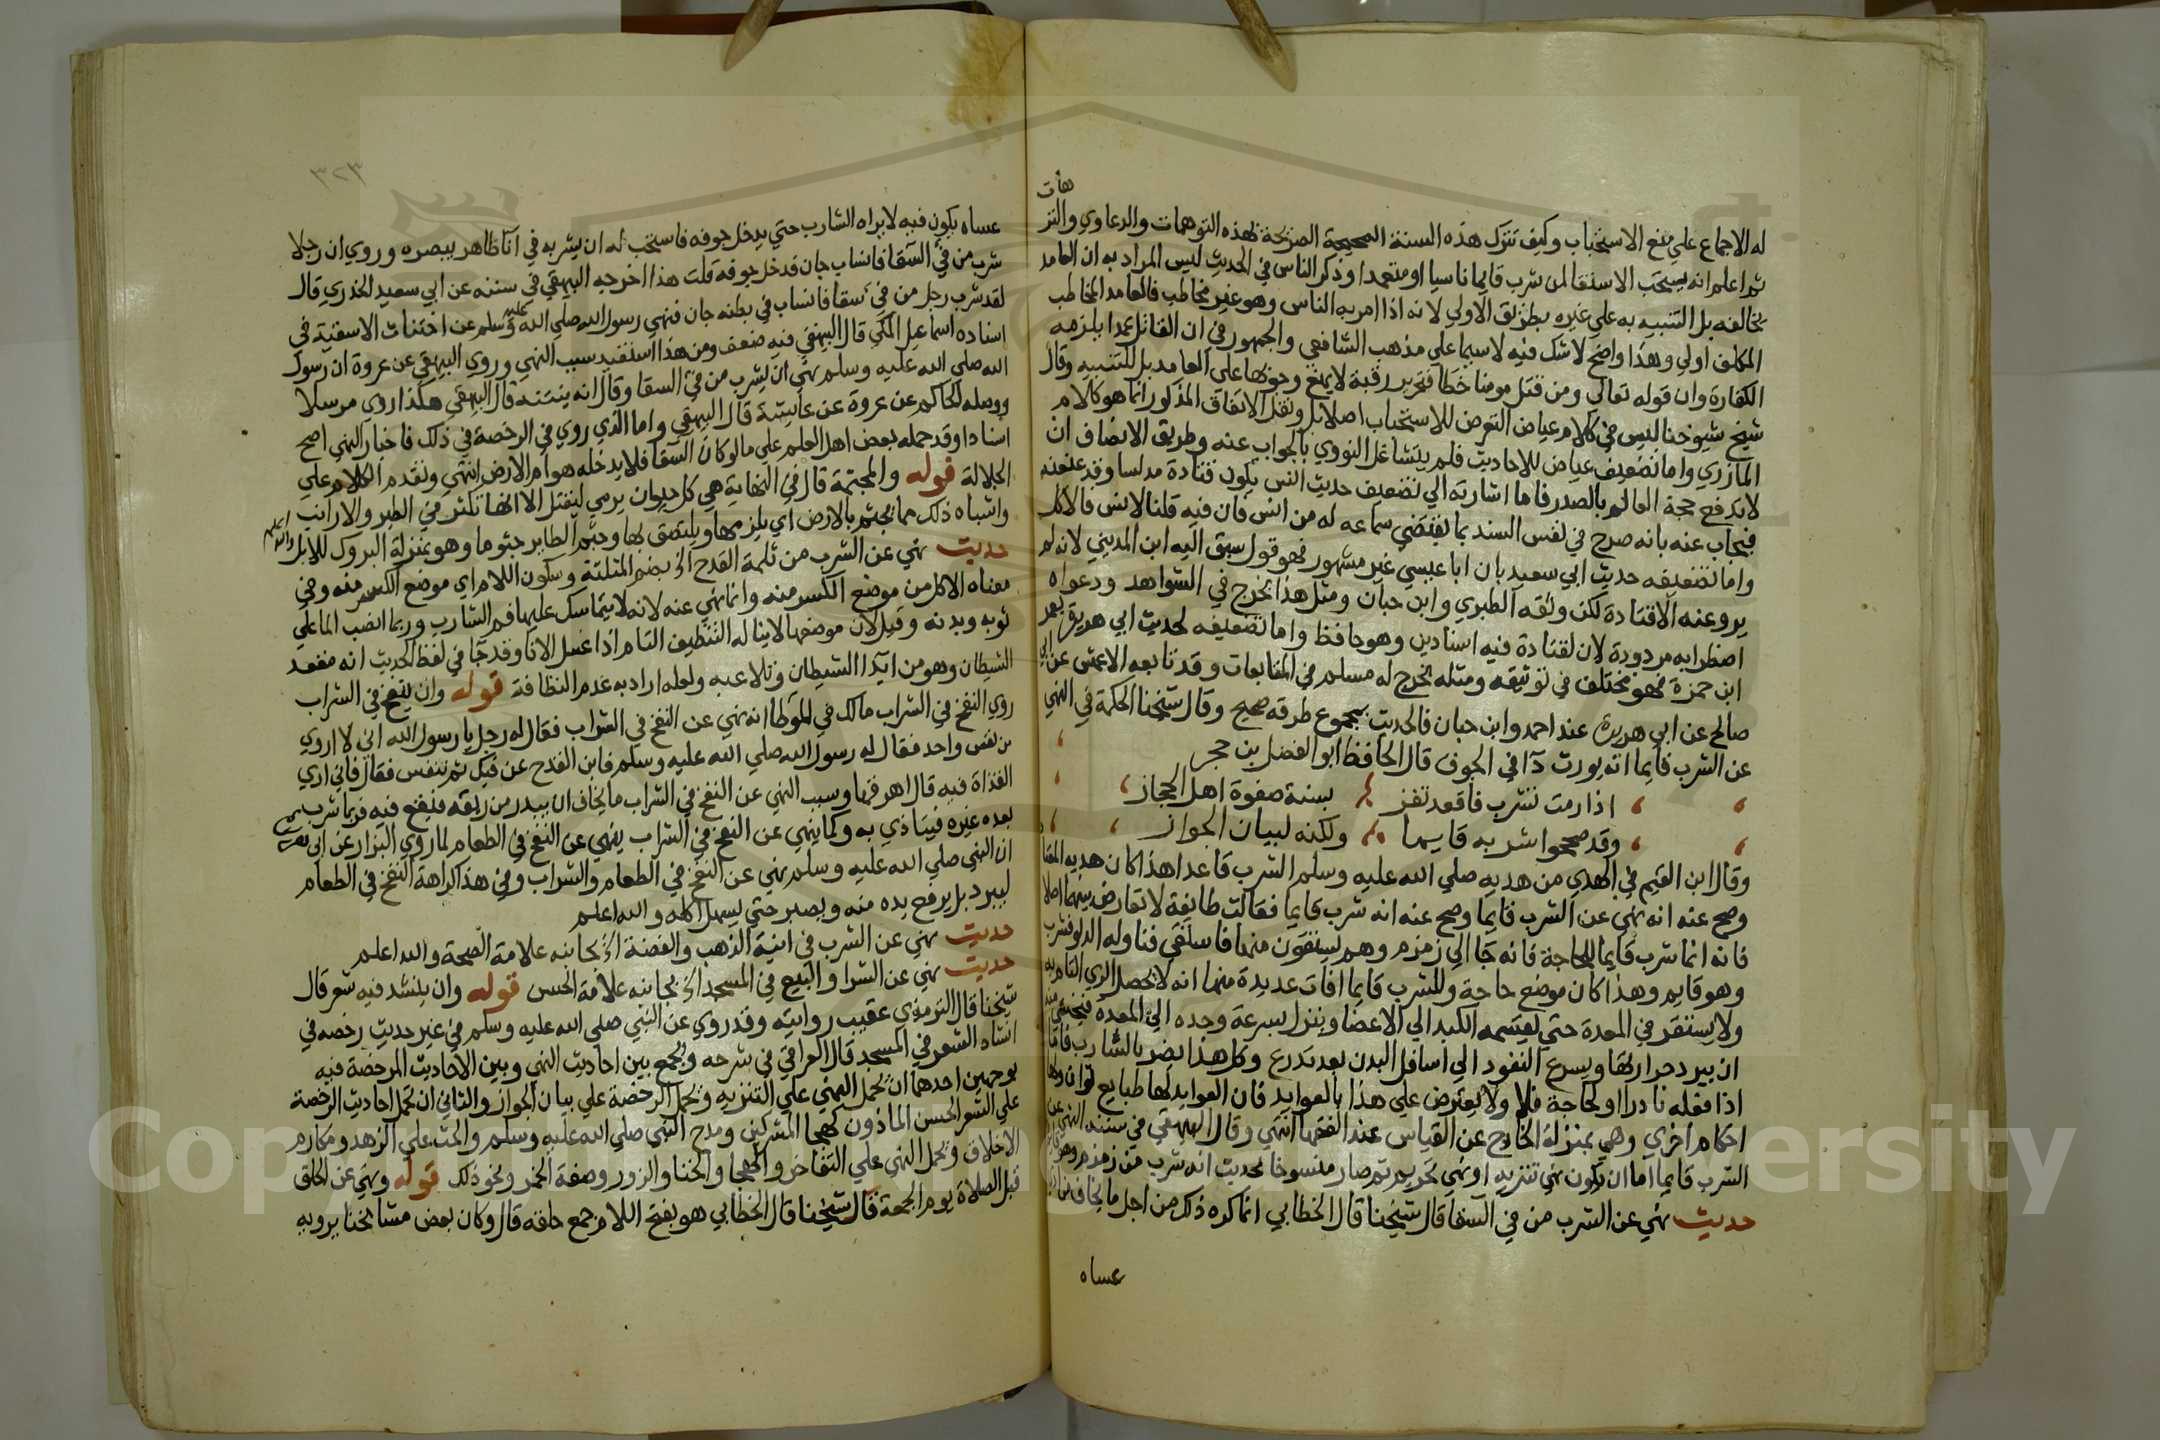 هات
له الاجماع علي منع الاستحباب وكيف تترك هذه السنة الصحيحة الصريحة لهذه التوهمات والدعاوي والتر
ثم اعلم انه يستحب الاستقا لمن شرب قايما ناسيا او متعمدا وذكر الناس في الحديث ليس المراد به ان العامد
يخالفه بل التنبيه به علي غيره بطريق الاولي لانه اذا امر به الناس وهو غير مخاطب فالعامد المخاطب
المكلف اولي وهذا واضح لا شك فيه لا سيما علي مذهب الشافعي والجمهور في ان القاتل عمدا يلزمه
الكفارة وان قوله تعالي ومن قتل مومنا خطا فتحرير رقبة لا يمنع وجوبها علي العامد بل للتنبيه وقال
شيخ شيوخنا ليس في كلام عياض التعرض للاستحباب اصلا بل ونقل الاتفاق المذكور انما هو كلام
المازري واما تضعيف عياض للاحاديث فلم يتشاغل النووي بالجواب عنه وطريق الانصاف ان
لا تدفع حجة العالم بالصدر فاما اشارته الي تضعيف حديث انس بكون قتادة مدلسا وقد عنعنه
فيجاب عنه بانه صرح في نفس السند بما يقتضي سماعه له من انس فان فيه قلنا لانس فالاكل
واما تضعيفه حديث ابي سعيد بان ابا عيسي غير مشهور فهو قول سبق اليه ابن المديني لانه لم
يرو عنه الا قتادة لكن وثقه الطبري وابن حبان ومثل هذا يخرج في الشواهد ودعواه
اضطرابه مردودة لان لقتادة فيه اسنادين وهو حافظ واما تضعيفه لحديث ابي هريرة بعمر
ابن حمزة فهو مختلف في توثيقه ومثله يخرج له مسلم في المتابعات وقد تابعه الاعمش عن ابي
صالح عن ابي هريرة عند احمد وابن حبان فالحديث بمجموع طرقه صحيح وقال شيخنا الحكمة في النهي
عن الشرب قايما انه يورث دآ في الجوف قال الحافظ ابو الفضل بن حجر
اذا رمت تشرب فاقعد تفز بسنة صفوة اهل الحجاز
وقد صححوا شربه قايما ولكنه لبيان الجواز
وقال ابن القيم في الهدي من هديه صلي الله عليه وسلم الشرب قاعدا هذا كان هديه المعتا
وصح عنه انه نهي عن الشرب قايما وصح عنه انه شرب قايما فقالت طايفة لا تعارض بينهما اصلا
فانه انما شرب قايما للحاجة فانه جا الي زمزم وهم يستقون منها فاستقي فناوله الدلو فشرب
وهو قايم وهذا كان موضع حاجة وللشرب قايما افات عديدة منها انه لا يحصل الري التام به
ولا يستقر في المعدة حتي يقسمه الكبد الي الاعضا وينزل بسرعة وحده الي المعدة فيخشي منه
ان يبرد حرارتها ويسرع النفود الي اسافل البدن بعد تدرج وكل هذا يضر بالشارب فاما
اذا فعله نادرا او لحاجة فلا ولا يعترض علي هذا بالعوايد فان العوايد لها طبايع ثوان ولها
احكام اخري وهي بمنزلة الخارج عن القياس عند الفقها انتهي وقال البيهقي في سننه النهي عن
الشرب قايما اما ان يكون نهي تنزيه او نهي تحريم ثم صار منسوخا لحديث انه شرب من زمزم وهو
حديث نهي عن الشرب من في السقا قال شيخنا قال الخطابي انما كره ذلك من اجل ما يخاف من
عساه
٣٢٣
عساه يكون فيه لا يراه الشارب حتي يدخل جوفه فاستحب له ان يشربه في انا ظاهر يبصره وروي ان رجلا
شرب من في السقا فانساب جان فدخل جوفه قلت هذا اخرجه البيهقي في سننه عن ابي سعيد الخدري قال
لقد شرب رجل من في سقا فانساب في بطنه جان فنهي رسول الله صلي الله عليه وسلم عن اختناث الاسقية في
اسناده اسماعيل المكي قال البيهقي فيه ضعف ومن هذا استفيد سبب النهي وروي البيهقي عن عروة ان رسول
الله صلي الله عليه وسلم نهي ان يشرب من في السقا وقال انه ينتنه قال البيهقي هكذا روي مرسلا
ووصله الحاكم عن عروة عن عايشة قال البيهقي واما الذي روي في الرخصة في ذلك فاخبار النهي اصح
اسنادا وقد حمله بعض اهل العلم علي ما لو كان السقا فلا يدخله هوام الارض انتهي وتقدم الكلام علي
الجلالة قوله والمجثمة قال في النهاية هي كل حيوان يرمي ليقتل الا انها تكثر في الطير والارانب
واشباه ذلك مما يجثم بالارض اي يلزمها ويلتصق بها وجثم الطاير جثوما وهو بمنزلة البروك للابل والله اعلم
حديث نهي عن الشرب من ثلمة القدح الخ بضم المثلثة وسكون اللام اي موضع الكسر منه وفي
معناه الاكل من موضع الكسر منه وانما نهي عنه لانه لا يتماسك عليها فم الشارب وربما انصب الما علي
ثوبه وبدنه وقيل لان موضعها لا يناله التنظيف التام اذا غسل الانا وقد جا في لفظ الحديث انه مقعد
الشيطان وهو من ايذا الشيطان وتلاعبه ولعله اراد به عدم النظافة قوله وان ينفخ في الشراب
روي النفخ في الشراب مالك في الموطا انه نهي عن النفخ في الشراب فقال له رجل يا رسول الله اني لا اروي
من نفس واحد فقال له رسول الله صلي الله عليه وسلم فابن القدح عن فيك ثم تنفس فقال فاني اري
القذاة فيه قال اهرقها وسبب النهي عن النفخ في الشراب ما يخاف ان يبدر من ريقه فيقع فيه فربما شرب
بعده غيره فيتاذي به وكما ينهي عن النفخ في الشراب ينهي عن النفخ في الطعام لما روي البزار عن ابي هريرة
ان النبي صلي الله عليه وسلم نهي عن النفخ في الطعام والشراب وفي هذا كراهة النفخ في الطعام
ليبرد بل يرفع يده منه ويصبر حتي يسهل اكله والله اعلم
حديث نهي عن الشرب في انية الذهب والفضة الخ بجانبه علامة الصحة والله اعلم
حديث نهي عن الشرا والبيع في المسجد الخ بجانبه علامة الحسن قوله وان ينشد فيه شعر قال
شيخنا قال الترمذي عقيب روايته وقد روي عن النبي صلي الله عليه وسلم في غير حديث رخصة في
انشاد الشعر في المسجد قال العراقي في شرحه ويجمع بين احاديث النهي وبين الاحاديث المرخصة فيه
بوجهين احدهما ان يحمل النهي علي التنزيه وتحمل الرخصة علي بيان الجواز والثاني ان تحمل احاديث الرخصة
علي الشعر الحسن الماذون كهجا المشركين ومدح النبي صلي الله عليه وسلم والحث علي الزهد ومكارم
الاخلاق ويحمل النهي علي التفاخر والهجا والخنا والزور وصفة الخمر ونحو ذلك قوله ونهي عن الحلق
قبل الصلاة يوم الجمعة قال شيخنا قال الخطابي هو بفتح اللام جمع حلقه قال وكان بعض مشايخنا يرويه
Copyright © King Saud University